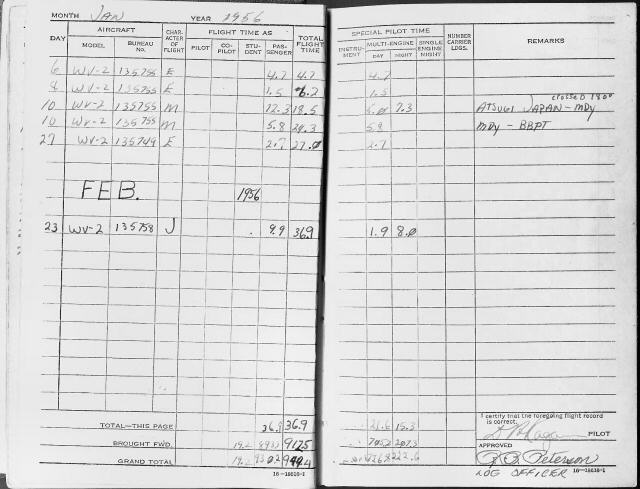 MONTH JAN YEAR 1956
DAY AIRCRAFT CHAR-ACTER OF FLIGHT FLIGHT TIME AS TOTAL FLIGHT TIME
MODEL BUREAU NO. PILOT CO-PILOT STU-DENT PAS-SENGER
6 WV-2 135755 E 4.7 4.7
8 WV-2 135755 E 1.5 6.2
10 WV-2 135755 M 12.3 18.5
10 WV-2 135755 M 5.8 24.3
27 WV-2 135749 E 2.7 27.0
FEB. 1956
23 WV-2 135758 J 9.9 36.9
TOTAL—THIS PAGE 36.9 36.9
BROUGHT FWD. 19.2 912.5
GRAND TOTAL 19.2
16—18618-1
SPECIAL PILOT TIME NUMBER CARRIER LDGS. REMARKS
INSTRU-MENT MULTI-ENGINE SINGLE ENGINE NIGHT
DAY NIGHT
4.7
1.5 crossed 180°
5.0 7.3 ATSUGI JAPAN - MDY
5.8 MDY - BBPT
2.7
1.9 8.0
15.3
I certify that the foregoing flight record is correct.
PILOT
APPROVED
Peterson
LOG OFFICER 16—18618-1